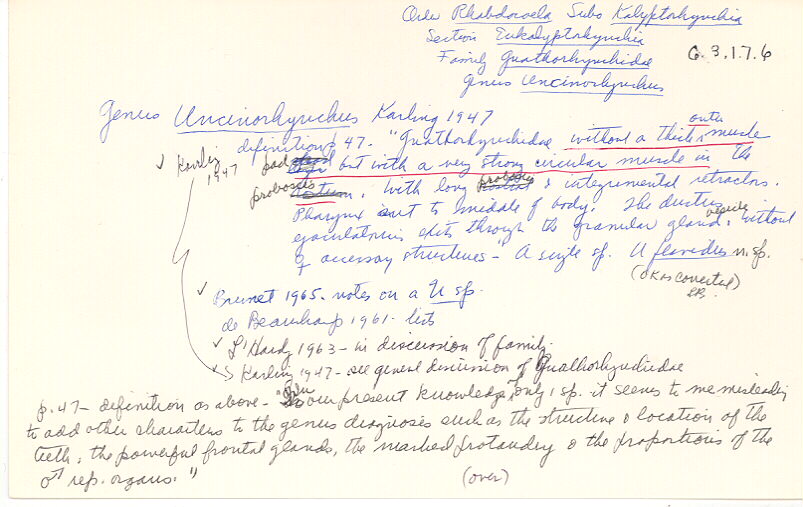 Order Rhabdocoela Subo Kalyptorhynchia
Section Eukalyptorhynchia
Family Gnathorhynchidae
Genus Uncinorhynchus
G.3.1.7.6
Genus Uncinorhynchus Karling 1947
✓ Karling 1947
definition p 47. "Gnathorhynchidae without a thick outer muscle
pad but with a very strong circular muscle in the
proboscis. With long proboscis & integumental retractors.
Pharynx ant to middle of body. The ductus
ejaculatorius exits through the granular gland vesicle without
♂ accessory structures - A single sp. U flavidus n. sp.
(OK as corrected)
✓ Brunet 1965 - notes on a U sp.
de Beauchamp 1961 - lists
✓ L'Hardy 1963 - in discussion of family.
Karling 1947 - see general discussion of Gnathorhynchidae
p. 47 - definition as above - "In our present knowledge, of only 1 sp. it seems to me misleading
to add other characters to the genus diagnosis such as the structure & location of the
teeth, the powerful frontal glands, the marked protandry & the proportions of the
♂ rep. organs."
(over)